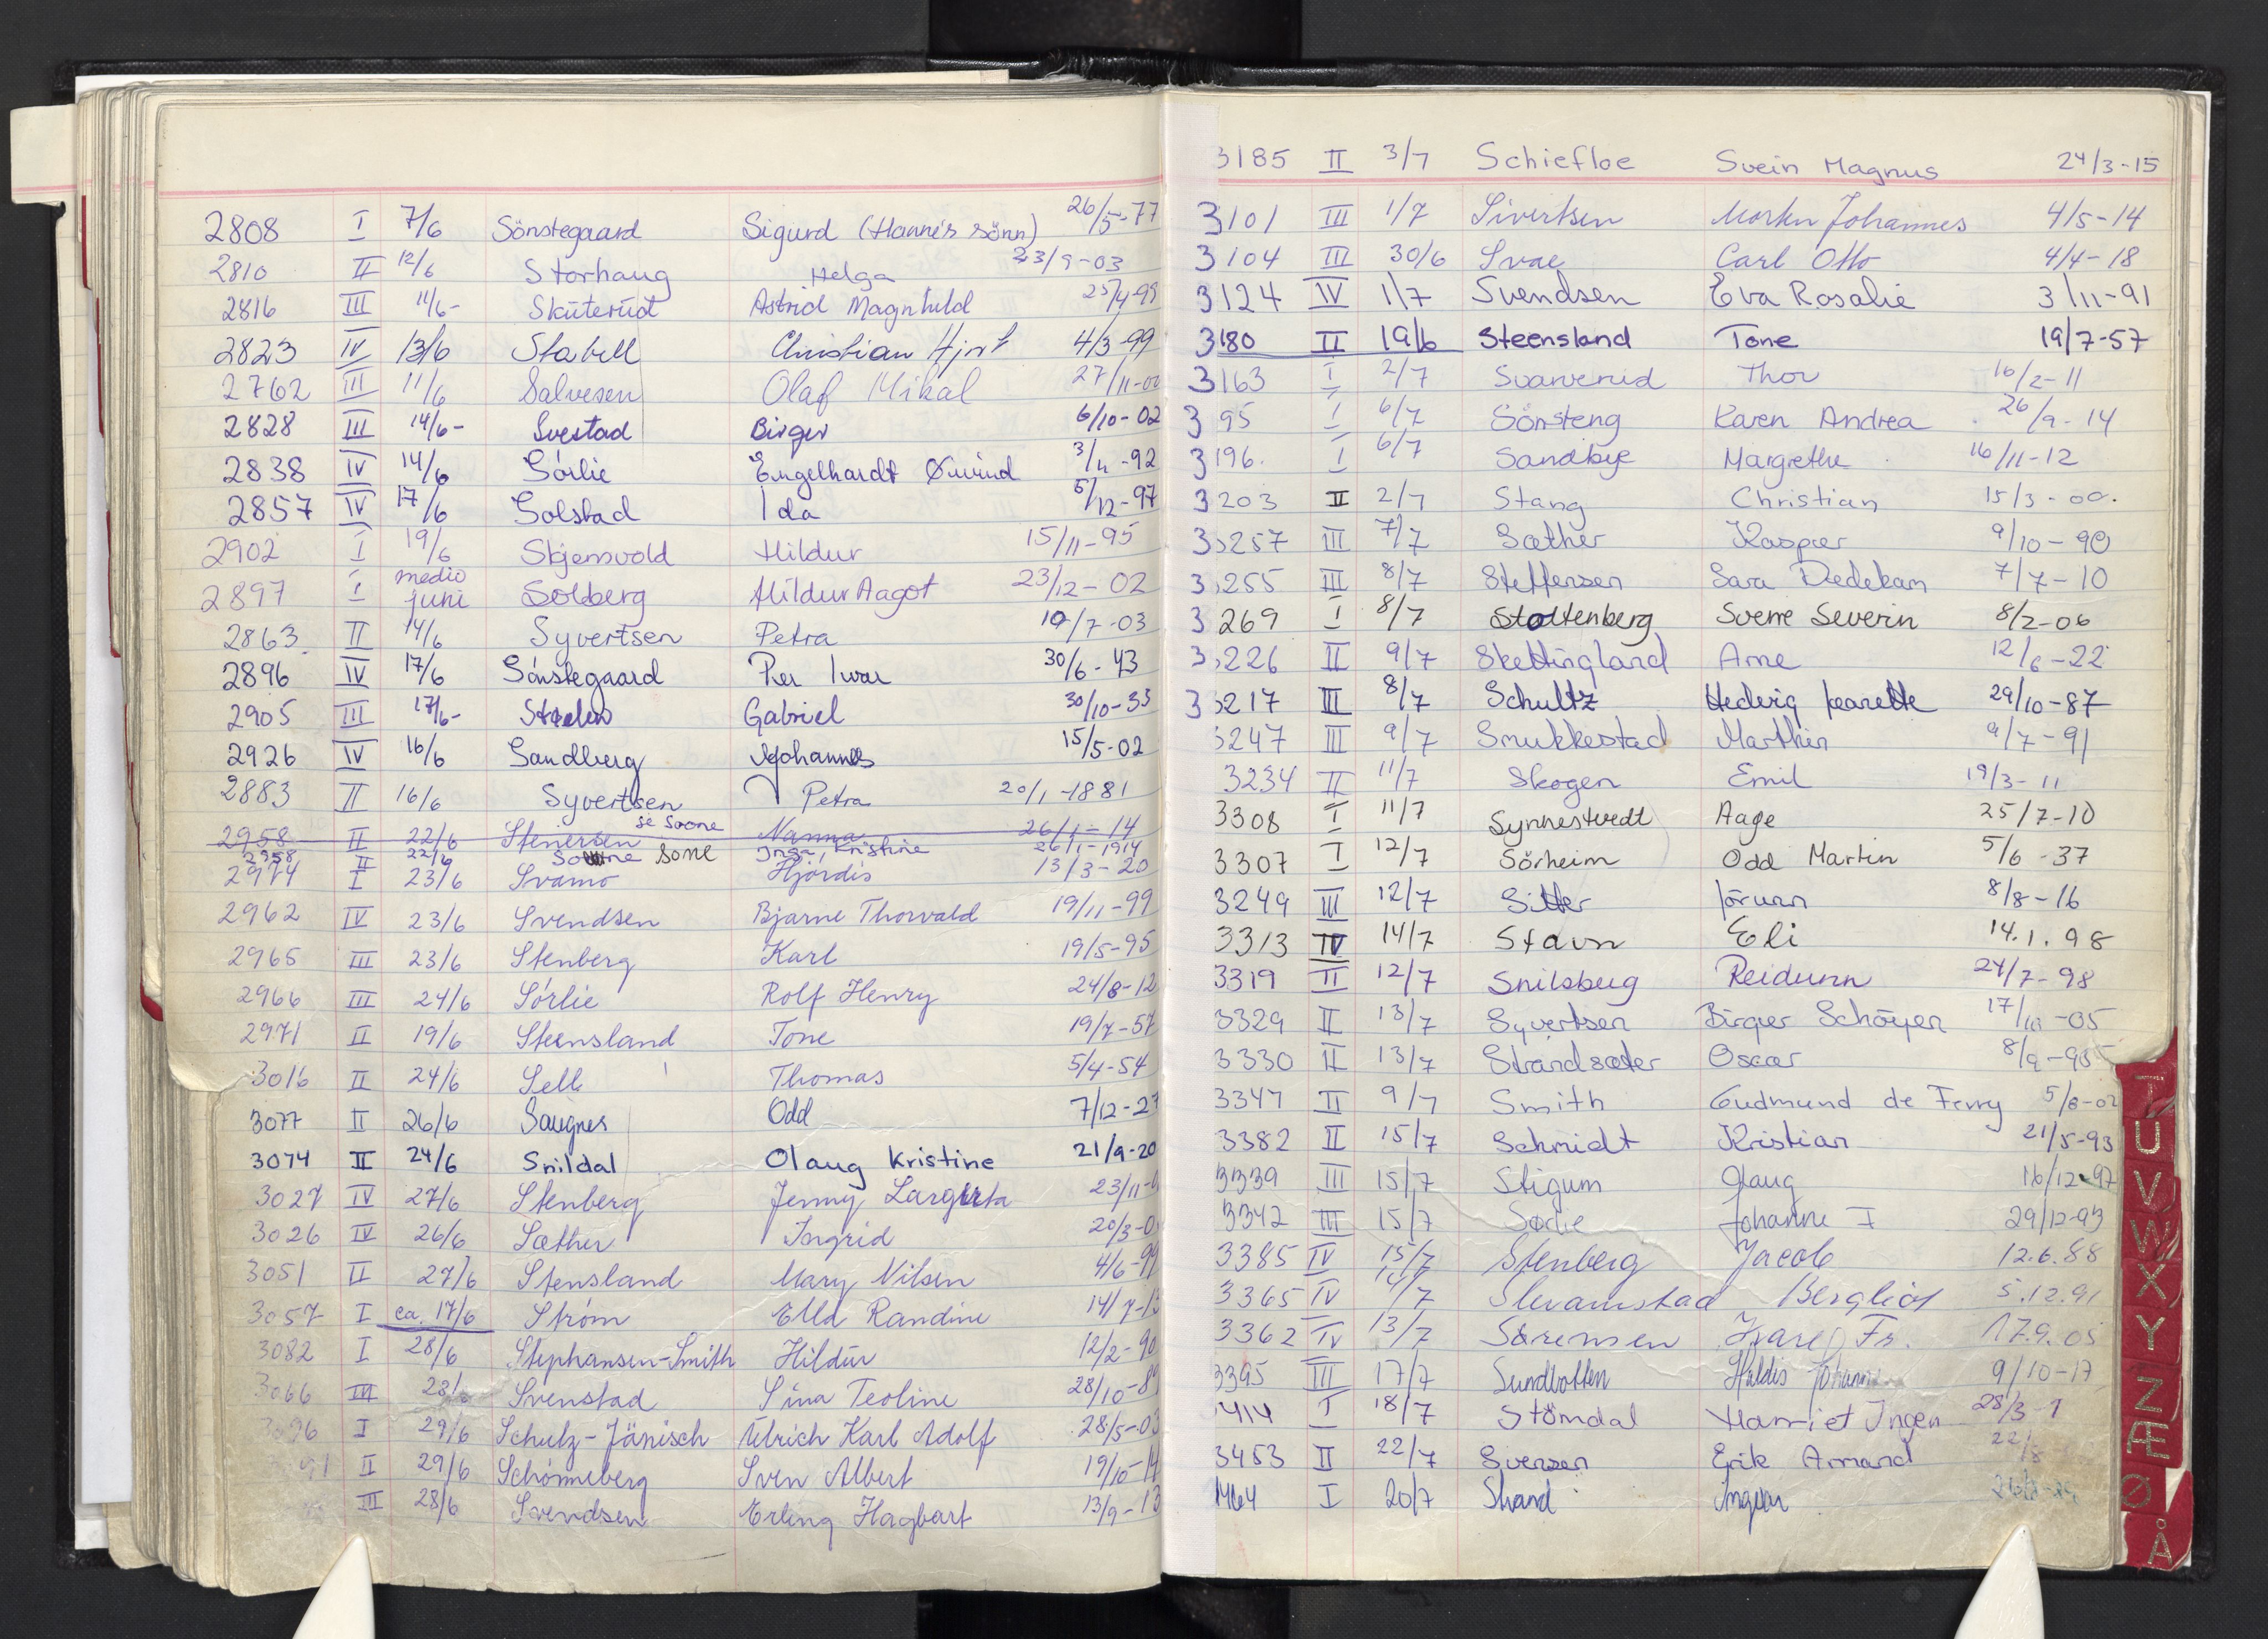 2808 I 7/6 Sönstegaard Sigurd (Hanne's sönn) 26/5-77
2810 II 12/6 Storhaug Helga 23/9-03
2816 III 11/6- Skuterud Astrid Magnhild 25/4-99
2823 IV 13/6 Stabell Christian Hjort 4/3-99
2762 III 11/6 Salvesen Olaf Mikal 27/11-00
2828 III 14/6- Svestad Birger 6/10-02
2838 IV 14/6 Sörlie Engelhardt Øivind 3/11-92
2857 IV 17/6 Solstad Ida 5/12-97
2902 I 19/6 Skjensvold Hildur 15/11-95
2897 I medio juni Solberg Hildur Aagot 23/12-02
2863. II 14/6 Syvertsen Petra 10/7-03
2896 IV 17/6 Sönstegaard Per Ivar 30/6-43
2905 III 17/6- Stælen Gabriel 30/10-33
2926 IV 16/6 Sandberg Johannes 15/5-02
2883 II 16/6 Syvertsen Petra 20/1-1881
2958 II 22/6 Stenersen se Soone Nanna 26/1-14
2958 II 22/6 Sone Inga Kristine 26/1-1914
2974 I 23/6 Svamo Hjördis 13/3-20
2962 IV 23/6 Svendsen Bjarne Thorvald 19/11-99
2965 III 23/6 Stenberg Karl 19/5-95
2966 III 24/6 Sörlie Rolf Henry 24/8-12
2971 II 19/6 Steensland Tone 19/7-57
3016 II 24/6 Selb Thomas 5/4-54
3077 II 26/6 Saugnes Odd 7/12-27
3074 II 24/6 Snildal Olaug Kristine 21/9-20
3027 IV 27/6 Stenberg Jenny 23/11-
3026 IV 26/6 Sæther Ingrid 20/3-0
3051 II 27/6 Stensland Mary Nilsen 4/6-99
3057 I ca. 17/6 Strøm Ella Randine 14/7-13
3082 I 28/6 Stephansen-Smith Hildur 12/2-90
3066 III 28/6 Svenstad Sina Teoline 28/10-8
3096 I 29/6 Schulz-Jänisch Ulrich Karl Adolf 28/5-03
91 II 29/6 Schönneberg Sven Albert 19/10-14
III 28/6 Svendsen Erling Hagbart 13/9-13
3185 II 3/7 Schiefloe Svein Magnus 24/3-15
3101 III 1/7 Sivertsen Morten Johannes 4/5-14
3104 III 30/6 Svae Carl Otto 4/4-18
3124 IV 1/7 Svendsen Eva Rosalie 3/11-91
3180 II 19/6 Steensland Tone 19/7-57
3163 I 2/7 Svarverud Thor 16/2-11
3 95 I 6/7 Sörsteng Karen Andrea 26/9-14
3196. I 6/7 Sandbye Margrethe 16/11-12
3203 II 2/7 Stang Christian 15/3-00.
3257 III 7/7 Sæther Kasper 9/10-90
3255 III 8/7 Steffensen Sara Dedekam 7/7-10
3269 I 8/7 Stoltenberg Sverre Severin 8/2-06
3226 II 9/7 Skettingland Arne 12/6-22
3217 III 8/7 Schultz Hedvig Jeanette 29/10-87
3247 III 9/7 Smukkestad Marthin 9/7-91
3234 II 11/7 Skogen Emil 19/3-11
3308 I 11/7 Synnestvedt Aage 25/7-10
3307 I 12/7 Sörheim Odd Martin 5/6-37
3249 III 12/7 Sitter Jorunn 8/8-16
3313 IV 14/7 Stavn Eli 14.1.98
3319 II 12/7 Snilsberg Reidunn 24/7-98
3329 II 13/7 Syvertsen Birger Schöyen 17/10-05
3330 II 13/7 Strandsæter Oscar 8/9-95
3347 II 9/7 Smith Gudmund de Ferry 5/8-02
3382 II 15/7 Schmidt Kristian 21/5-93
3339 III 15/7 Stigum Olaug 16/12-97
3342 III 15/7 Sørlie Johanne I 29/12-93
3385 IV 15/7 Stenberg Jacob 12.6.88
3365 IV 14/7 Slevamstad Bergliot 5.12.91
3362 IV 13/7 Sørensen Ivare Fr. 17.9.05
3395 III 17/7 Sundbotten Haldis Johanne 9/10-17
3414 I 18/7 Stömdal Harriet Inger 28/3-1
3453 II 22/7 Svensen Erik Armand 22/8
3464 I 20/7 Strand Ingvar
T
U
V
W
X
Y
Z
Æ
Ø
Å